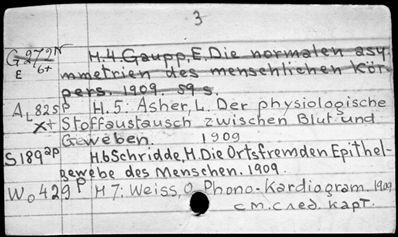 3
G 272N H.4. Gaupp, E. Die normalen asy-
E 6+ mmetrien des menschlichen Kör-
pers. 1909. 59 s.
AL 825P H. 5: Asher, L. Der physiologische
X+ Stoffaustausch zwischen Blut und
Geweben. 1909
S189ap H.6 Schridde, H. Die Ortsfremden Epithel-
gewebe des Menschen. 1909.
Wo 429P H 7: Weiss, O. Phono-Kardiogram. 1909
см. след. карт.